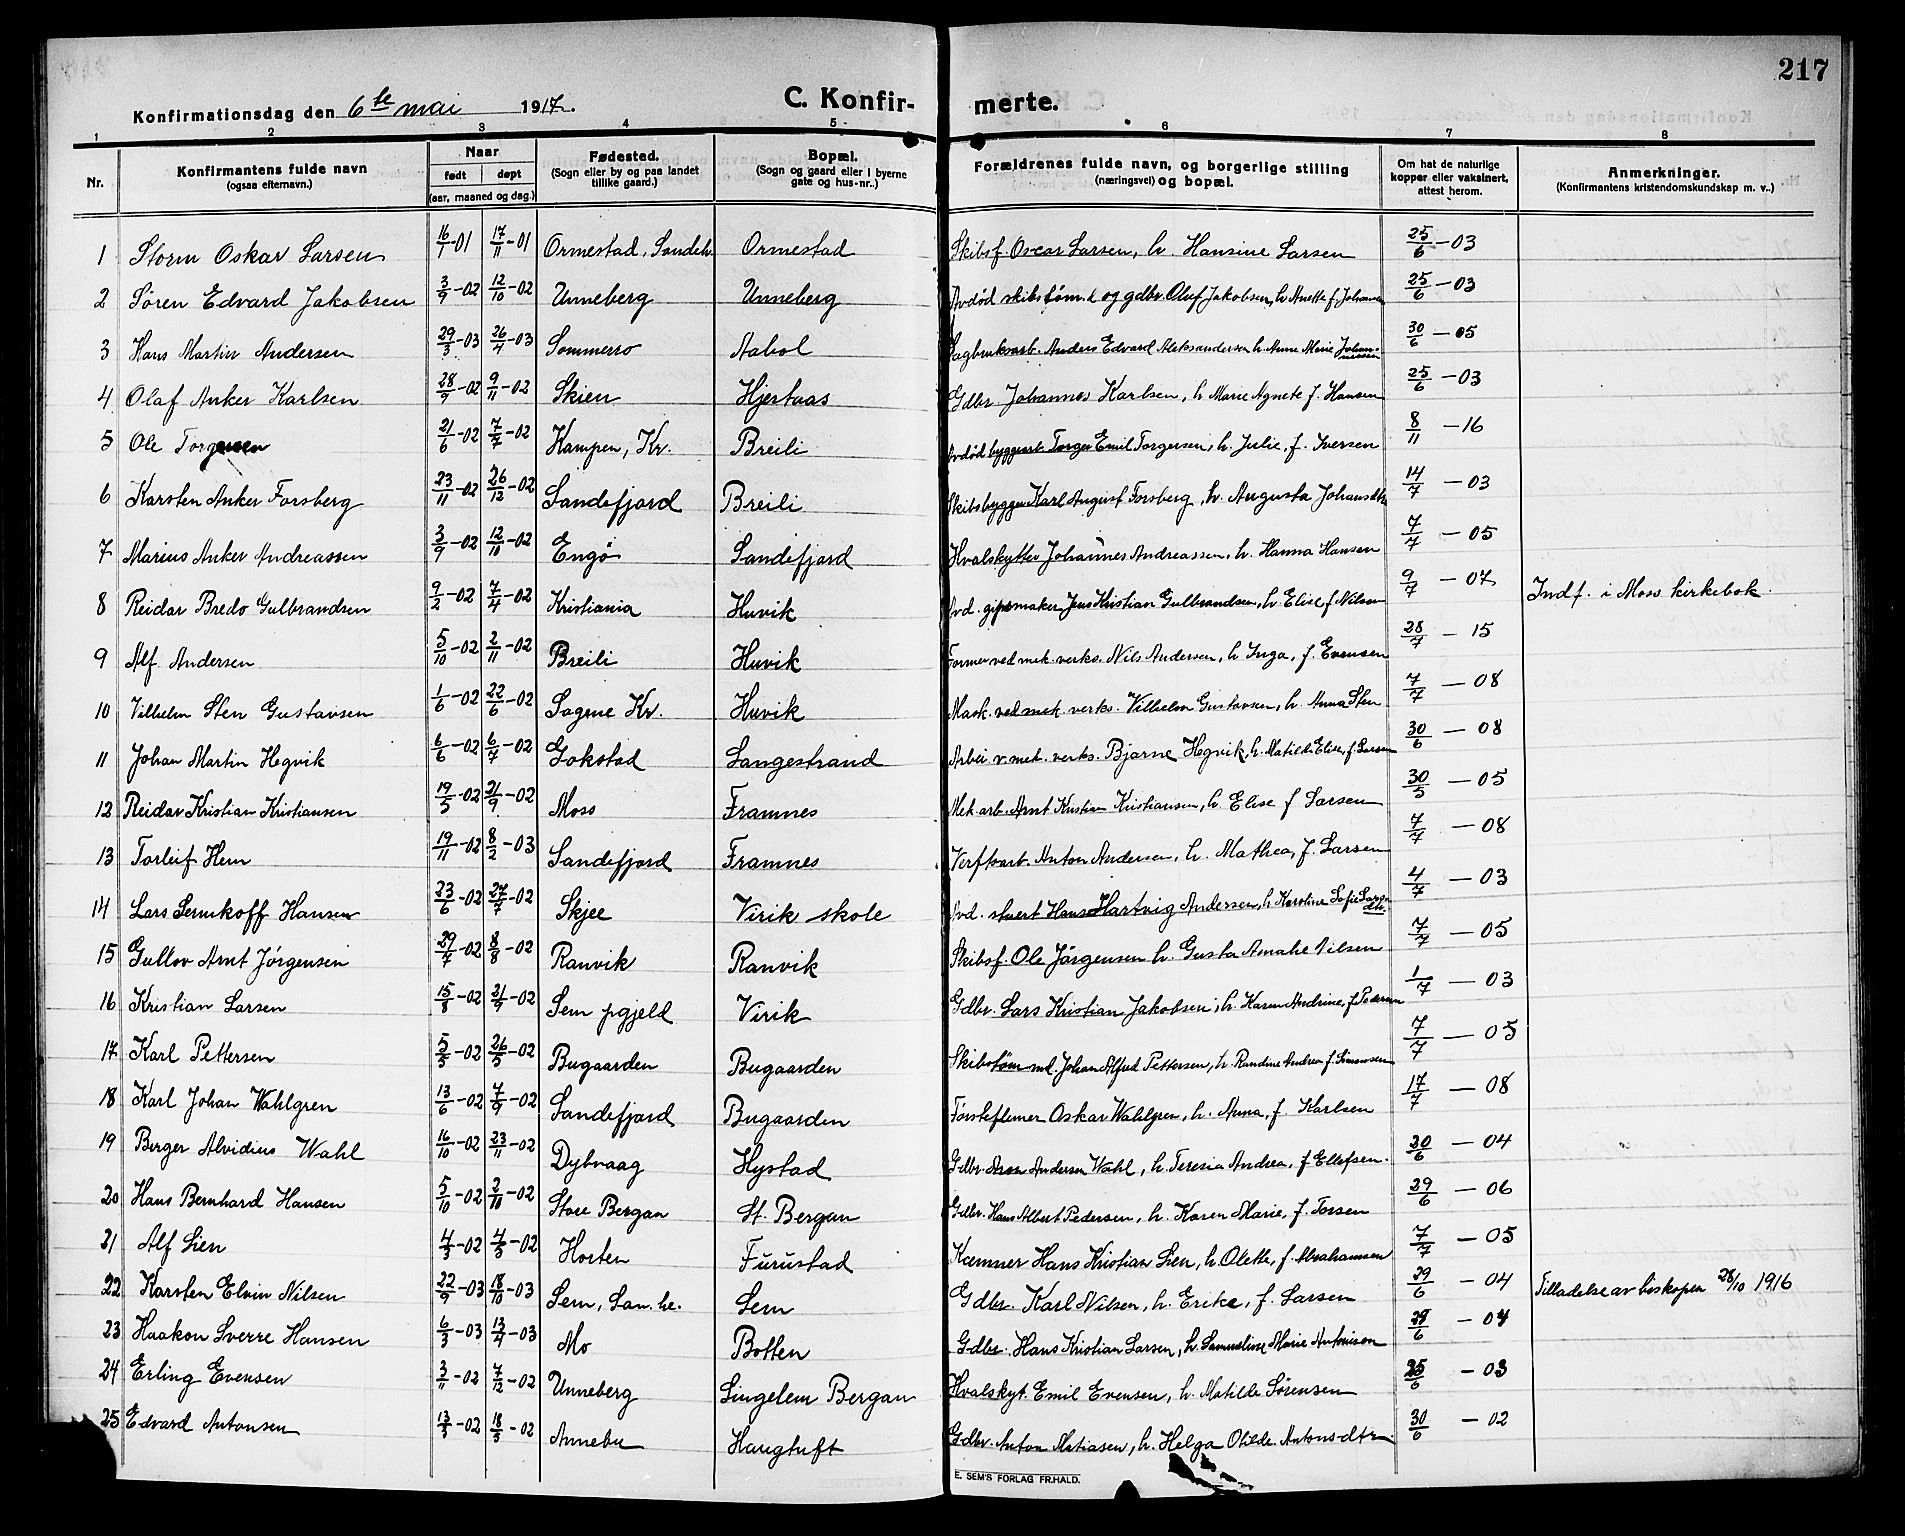 217
Konfirmationsdag den 6te mai 1917.
C. Konfir- merte.
1 2 3 4 5 6 7 8
Nr.
Konfirmantens fulde navn
(ogsaa efternavn.)
Naar
født døpt
(aar, maaned og dag.)
Fødested.
(Sogn eller by og paa landet
tillike gaard.)
Bopæl.
(Sogn og gaard eller i byerne
gate og hus-nr.)
Forældrenes fulde navn, og borgerlige stilling
(næringsvei) og bopæl.
Om hat de naturlige
kopper eller vaksinert,
attest herom.
Anmerkninger.
(Konfirmantens kristendomskundskap m. v..)
1 Storm Oskar Larsen 16/1-01 17/11-01 Ormestad, Sandeh. Ormestad Skibsf. Oscar Larsen, h. Hansine Larsen 25/6-03
2 Søren Edvard Jakobsen 3/9-02 12/10-02 Unneberg Unneberg Avdød skibstømd og gdbr. Oluf Jakobsen, h. Anette f. Johansen 25/6-03
3 Hans Martin Andersen 29/3-03 26/4-03 Sommerro Aabol Sagbruksarb. Anders Edvard Aleksandersen h. Anne Marie Johannessen 30/6-05
4 Olaf Anker Karlsen 28/9-02 9/11-02 Skien Hjertaas Gdbr. Johannes Karlsen, h. Marie Agnete f. Hansen 25/6-03
5 Ole Torgersen 21/6-02 7/7-02 Kampen, Kr. Breili Avdød byggearb. Torger Emil Torgersen, h. Julie, f. Iversen 8/11-16
6 Karsten Anker Forsberg 23/11-02 26/12-02 Sandefjord Breili Skibsbygger Karl August Forsberg, h. Augusta Johansdtr 14/7-03
7 Marius Anker Andreassen 3/9-02 12/10-02 Engø Sandefjord Hvalskytter Johannes Andreassen, h. Hanna Hansen 7/7-05
8 Reidar Bredo Gulbrandsen 9/2-02 7/4-02 Kristiania Huvik Avd. gipsmaker Jens Kristian Gulbrandsen, h. Elise f. Nilsen 9/7-07 Indf. i Moss kirkebok.
9 Alf Andersen 5/10-02 2/11-02 Breili Huvik Former ved mek. verks. Nils Andersen, h. Inga, f. Evensen 28/7-15
10 Vilhelm Sten Gustavsen 1/6-02 22/6-02 Sagene Kr. Huvik Mask. ved mek. verks. Vilhelm Gustavsen, h. Anna Sten 7/7-08
11 Johan Martin Hegvik 6/6-02 6/7-02 Gokstad Langestrand Arbei v. mek. verks. Bjarne Hegvik, h. Matilde Elise, f. Larsen 30/6-08
12 Reidar Kristian Kristiansen 19/5-02 21/9-02 Moss Framnes Mek. arb. Arnt Kristian Kristiansen, h. Elise f Larsen 30/5-05
13 Torleif Hem 19/11-02 8/2-03 Sandefjord Framnes Verftsarb. Anton Andersen, h. Mathea, f. Larsen 7/7-08
14 Lars Lernikoff Hansen 23/6-02 27/7-02 Skjee Virik skole Avd. stuert Hans Hartvig Andersen, h Karoline Sofie Larsdtr. 4/7-03
15 Gullov Arnt Jörgensen 29/4-02 8/8-02 Ranvik Ranvik Skibsf. Ole Jørgensen h. Gusta Amalie Nilsen 7/7-05
16 Kristian Larsen 15/8-02 21/9-02 Sem pgjeld Virik Gdbr. Lars Kristian Jakobsen, h. Karen Andrine, f. Pedersen 1/7-03
17 Karl Pettersen 5/3-02 26/5-02 Bugaarden Bugaarden Skibstømmd. Johan Alfred Pettersen, h. Randine Andrea f. Simonsen 7/7-05
18 Karl Johan Wahlgren 13/6-02 7/9-02 Sandefjord Bugaarden Førsteflenser Oskar Wahlgren, h. Anna, f. Karlsen 17/7-08
19 Berger Alvidius Wahl 16/10-02 23/11-02 Dybvaag Hystad Gdbr. Aron Andersen Wahl, h. Teresia Andrea, f Ellefsen. 20/6-04
20 Hans Bernhard Hansen 5/10-02 2/11-02 Store Bergan St. Bergan Gdbr. Hans Albert Pedersen, h. Karen Marie, f. Torsen 29/6-06
21 Alf Lien 4/3-02 4/5-02 Horten Furustad Kæmner Hans Kristian Lien, h. Olette, f. Abrahamsen 7/7-05
22 Karsten Elvin Nilsen 22/9-03 18/10-03 Sem, San. he. Sem Gdbr. Karl Nilsen, h. Erika, f. Larsen 29/6-04 Tilladelse av biskopen 28/10 1916
23 Haakon Sverre Hansen 6/3-03 13/4-03 Mo Botten Gdbr. Hans Kristian Larsen, h. Samueline Marie Antonisen 29/6-04
24 Erling Evensen 3/11-02 7/12-02 Unneberg Lingelem Bergan Hvalskyt. Emil Evensen, h. Matilde Sørensen 25/6-03
25 Edvard Antonsen 13/3-02 18/5-02 Annebu Haugtuft Gdbr. Anton Matiasen, h. Helga Otilde Antonsdtr. 30/6-02
E. SEM'S FORLAG FR.HALD.